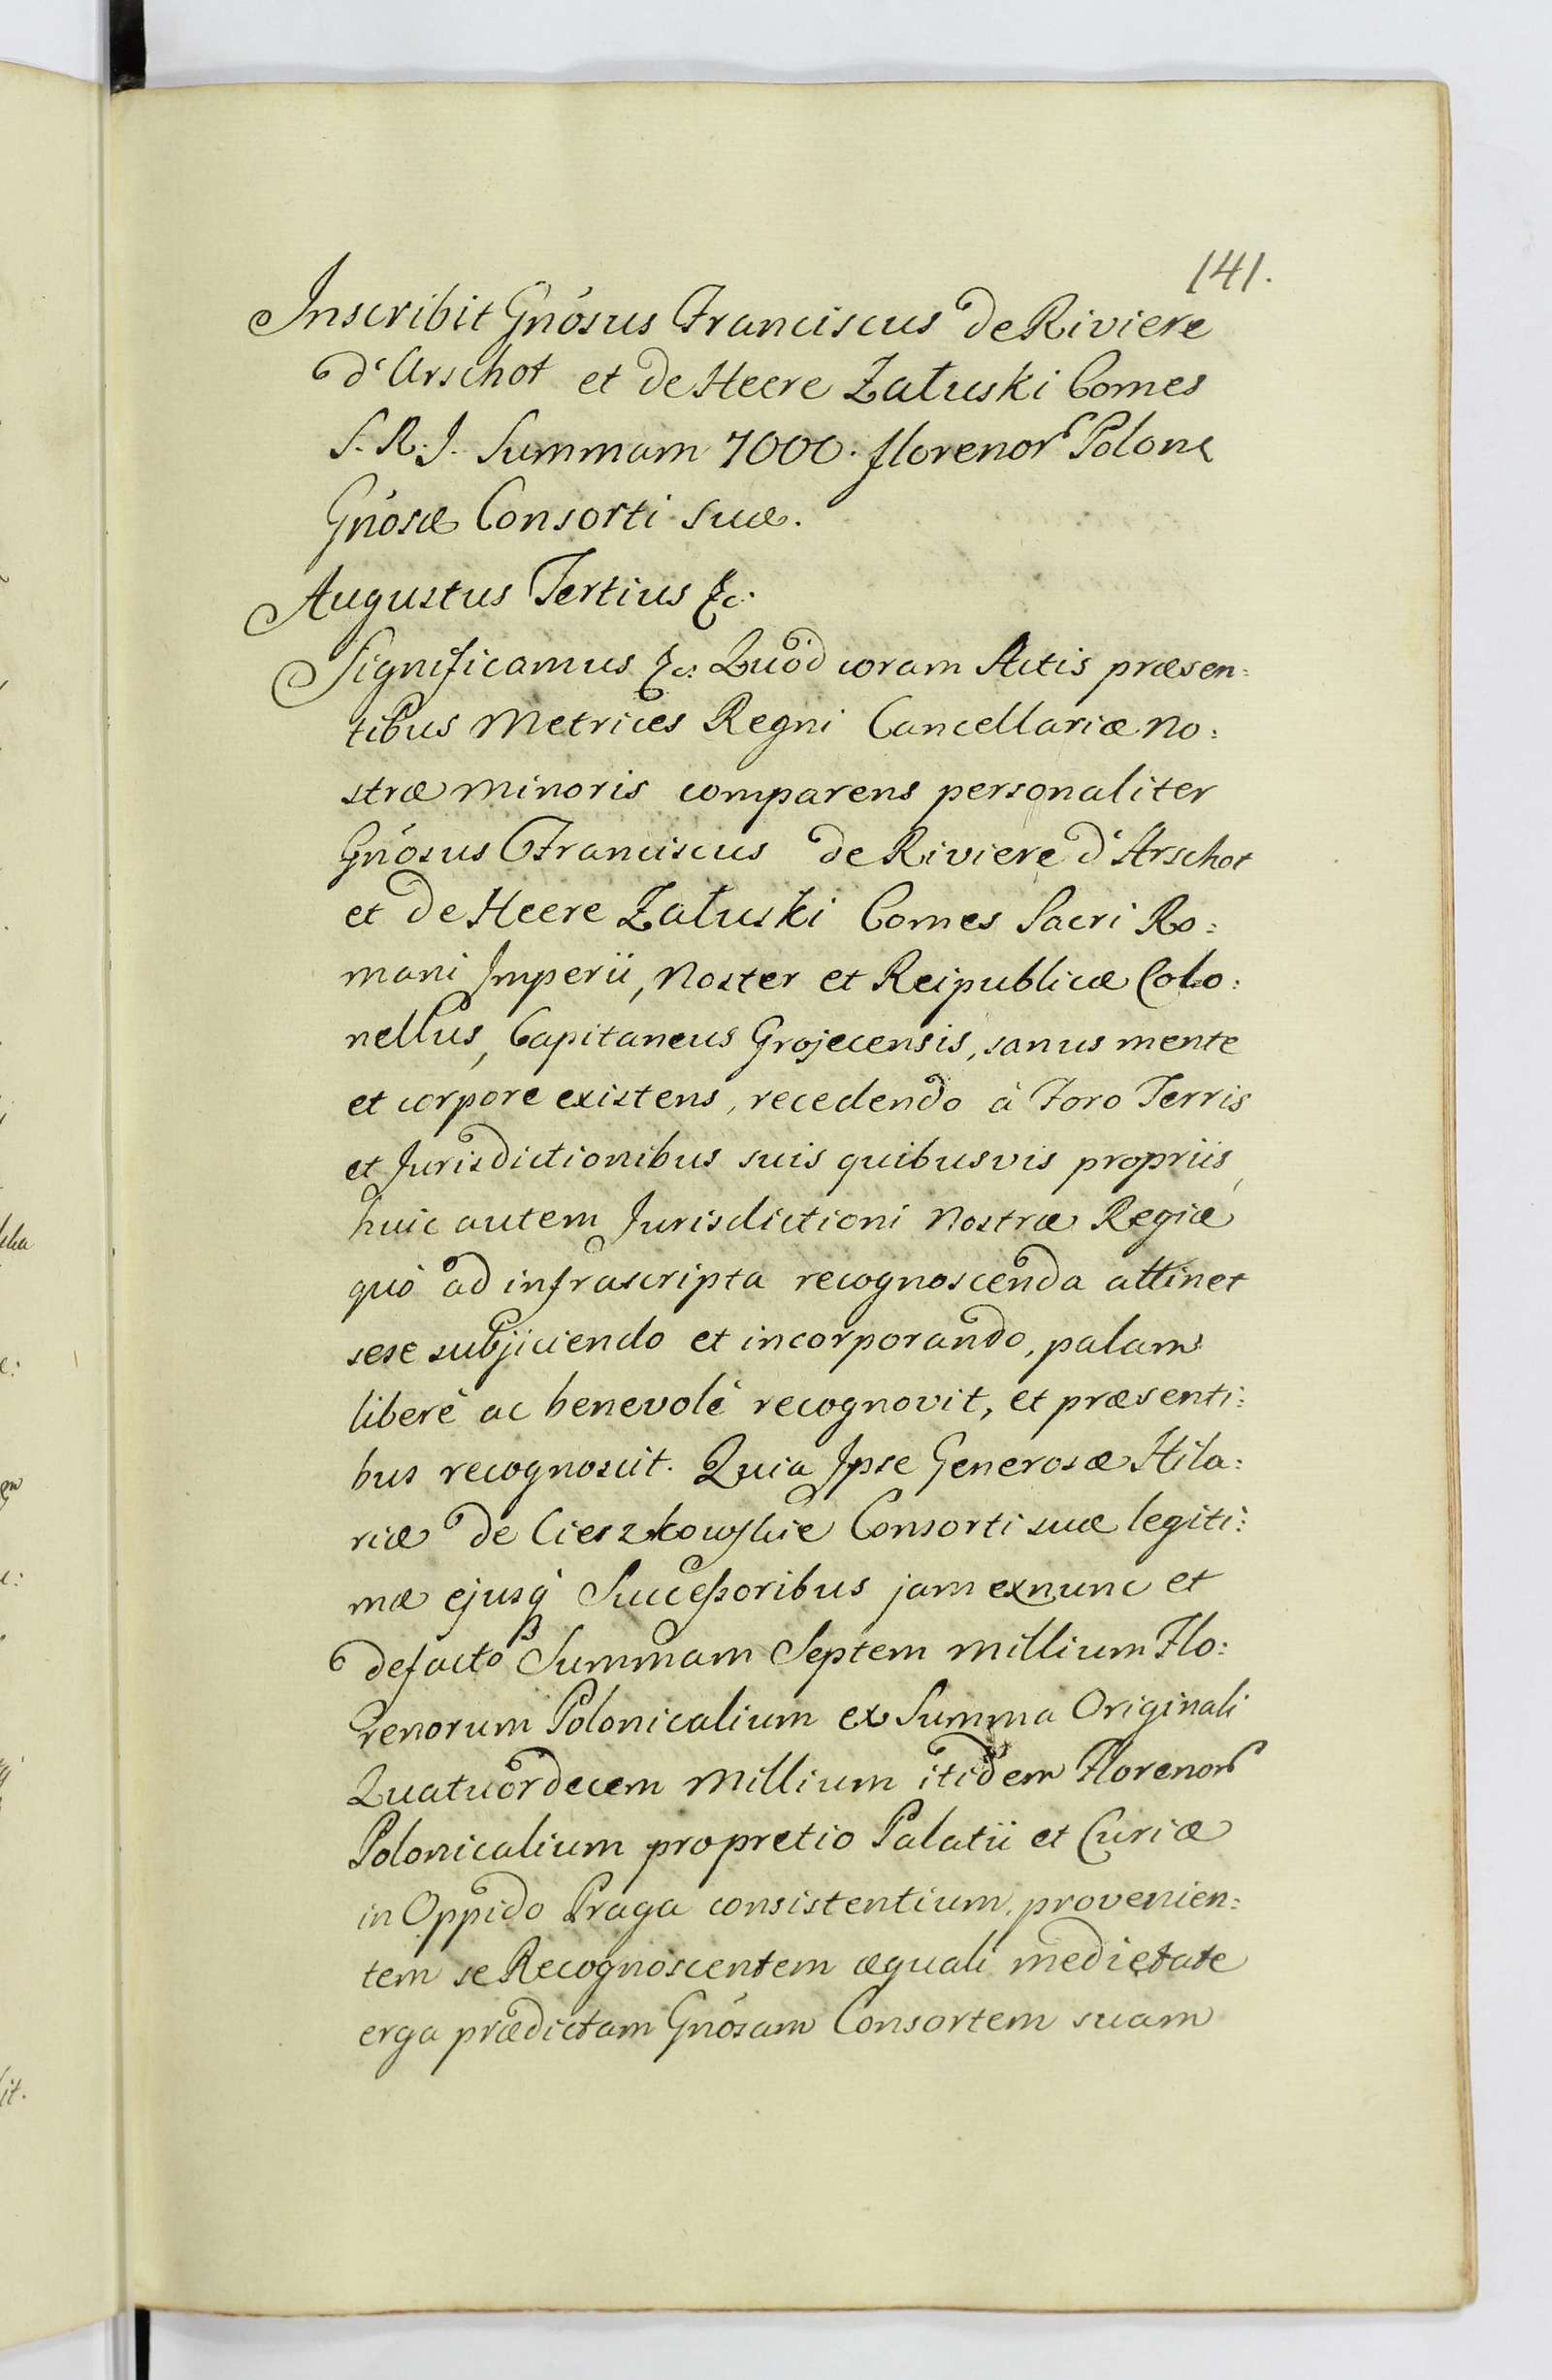 141.
Inscribit Gnósus Franciscus de Riviere
d'Arschot et de Heere Załuski Comes
S. R. J. Summam 7000. florenor Polon
Gnósæ Consorti suæ.
Augustus Tertius &c:
Significamus &c: Quòd coram Actis præsen:
tibus Metrices Regni Cancellariæ No:
stræ Minoris comparens personaliter
Gnósus Franciscus de Riviere d'Arschot
et de Heere Załuski Comes Sacri Ro:
mani Imperii, Noster et Reipublicæ Colo:
nellus, Capitaneus Grojecensis, sanus mente
et corpore existens, recedendo à Foro Terris
et Jurisdictionibus suis quibusvis propriis,
huic autem Jurisdictioni Nostræ Regiæ
quò ad infrascripta recognoscenda attinet
sese subjiciendo et incorporando, palam
liberè ac benevolè recognovit, et præsenti:
bus recognoscit. Quia Ipse Generosæ Hila:
riæ de Cieszkowskie Consorti suæ legiti:
mæ ejusq́ Successoribus jam exnunc et
defacto Summam Septem Millium Flo:
renorum Polonicalium ex Summa Originali
Quatuordecem Millium itidem Florenor
Polonicalium propretio Palatii et Curiæ
in Oppido Praga consistentium, provenien:
tem se Recognoscentem æquali medietate
erga prædictam Gnósam Consortem suam